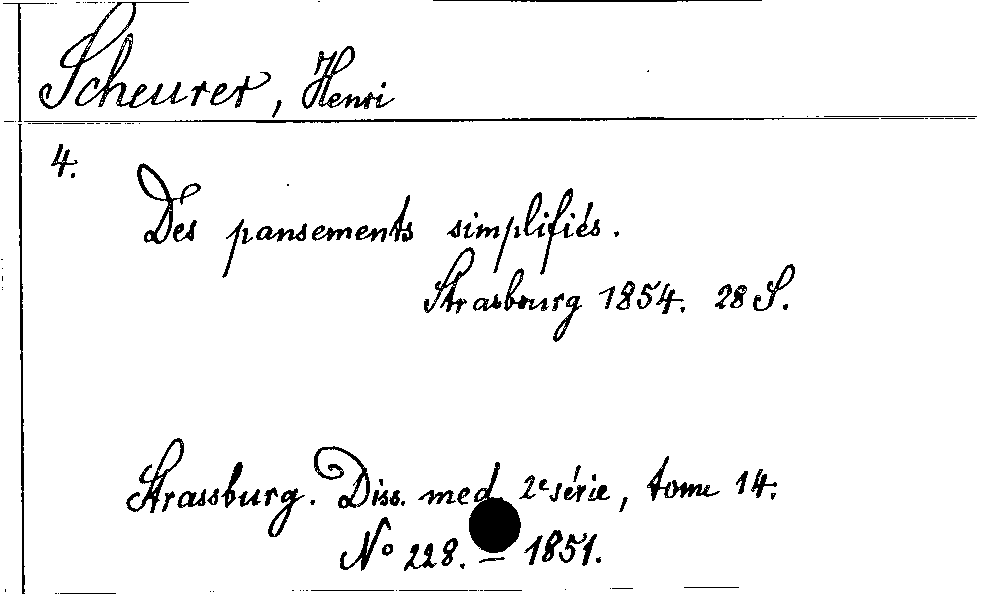 Scheurer, Henri
4.
Des pansements simplifiés.
Strasbourg 1854. 28 S.
Strassburg. Diss. med. 2e série, tome 14.
No 228. – 1851.